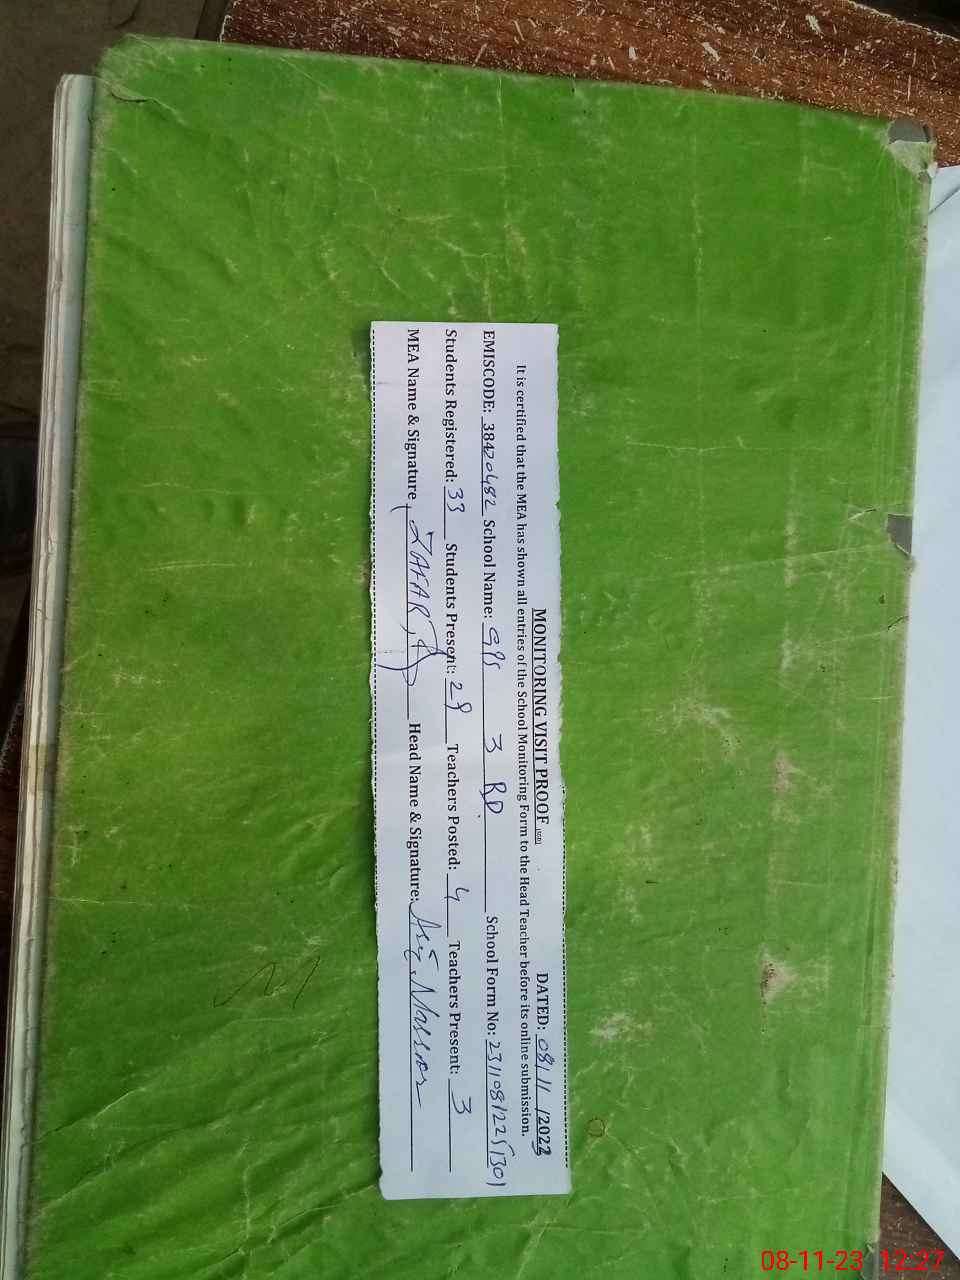 MONITORING VISIT PROOF (SED) DATED: 08/11/2023
It is certified that the MEA has shown all entries of the School Monitoring Form to the Head Teacher before its online submission.
EMISCODE: 38420482 School Name: GPS 3 RD. School Form No: 23110812251301
Students Registered: 33 Students Present: 29 Teachers Posted: 4 Teachers Present: 3
MEA Name & Signature ZAFAR Head Name & Signature:
08-11-23 12:27